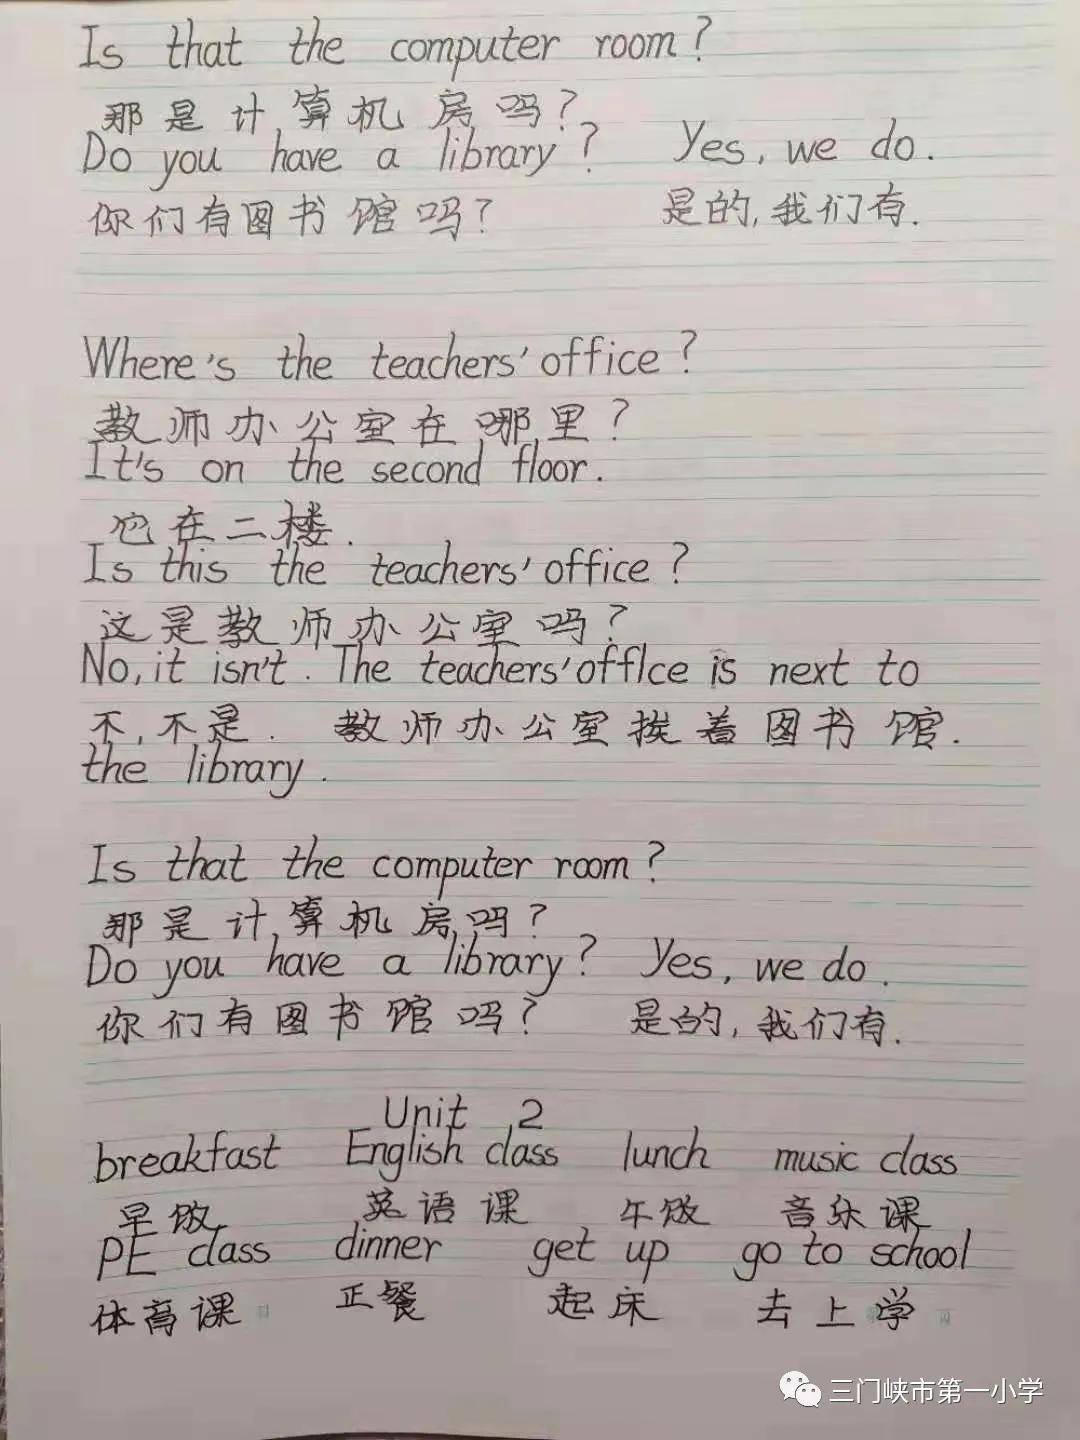 Is that the computer room?
那是计算机房吗?
Do you have a library? Yes, we do.
你们有图书馆吗? 是的,我们有.
Where's the teachers' office?
教师办公室在哪里?
It's on the second floor.
它在二楼.
Is this the teachers' office?
这是教师办公室吗?
No, it isn't. The teachers' office is next to
不,不是. 教师办公室挨着图书馆.
the library.
Is that the computer room?
那是计算机房吗?
Do you have a library? Yes, we do.
你们有图书馆吗? 是的,我们有.
Unit 2
breakfast English class lunch music class
早饭 英语课 午饭 音乐课
PE class dinner get up go to school
体育课 正餐 起床 去上学
三门峡市第一小学